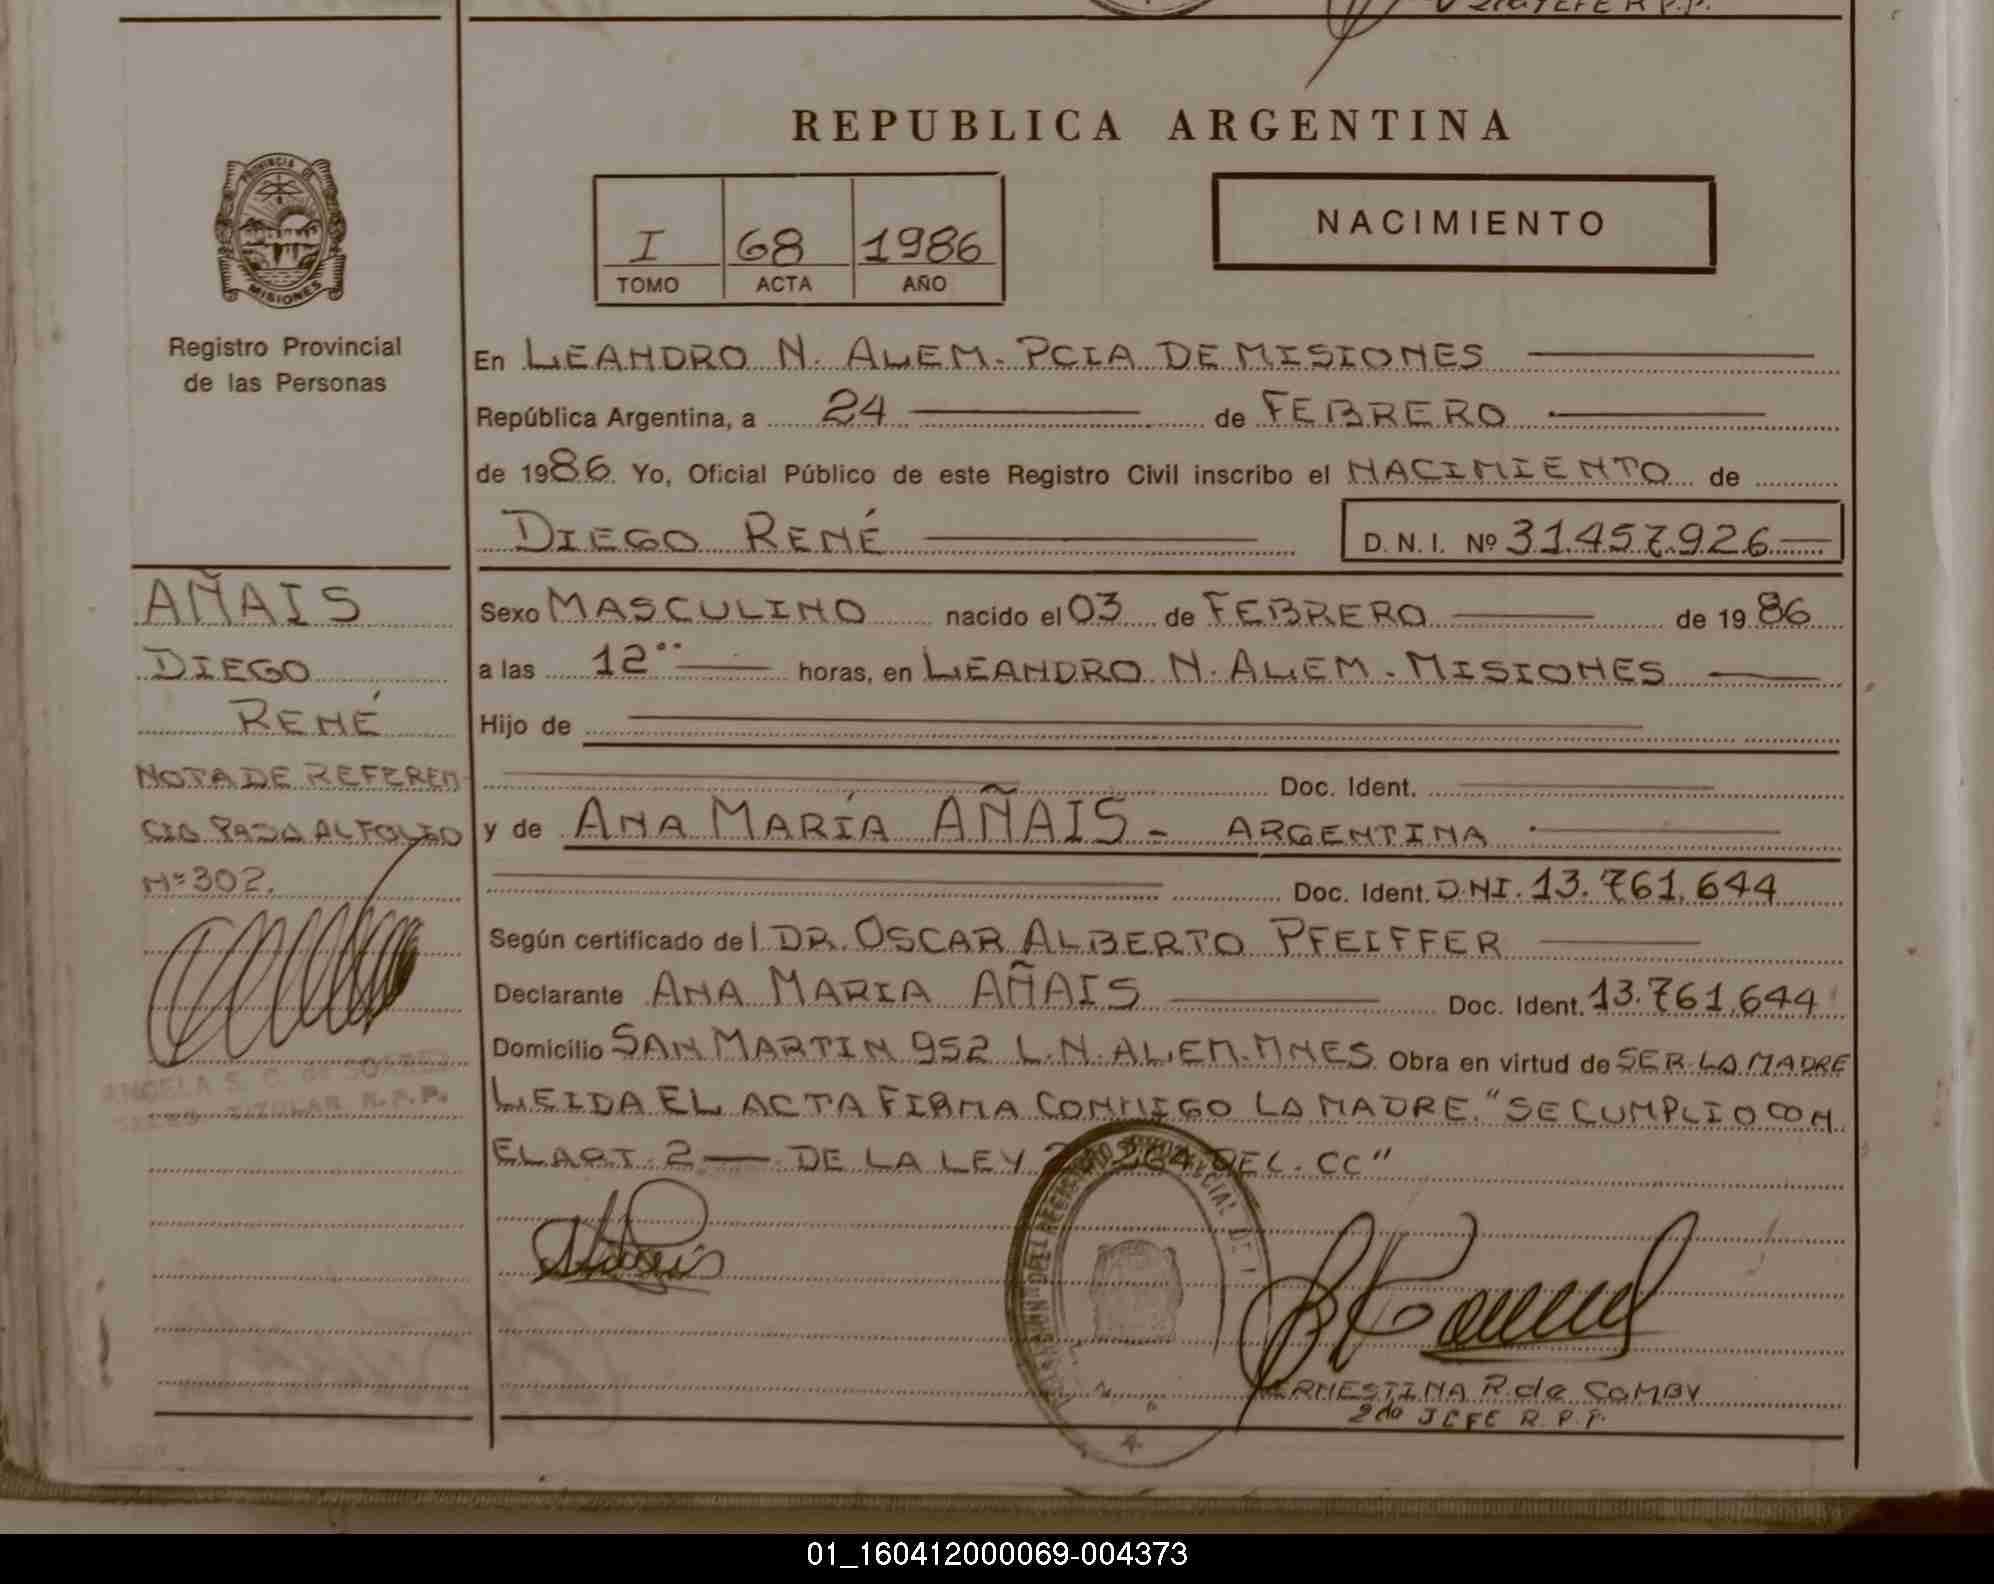 REPUBLICA ARGENTINA
PROVINCIA DE
MISIONES
Registro Provincial
de las Personas
I 68 1986
TOMO ACTA AÑO
NACIMIENTO
En LEANDRO N. ALEM. PCIA DE MISIONES
República Argentina, a 24 de FEBRERO
de 1986. Yo, Oficial Público de este Registro Civil inscribo el NACIMIENTO de
DIEGO RENÉ D. N. I. Nº 31.457.926
AÑAIS
DIEGO
RENÉ
NOTA DE REFEREN
CIA PASA AL FOLIO
Nº 302.
ANGELA S. C. de
TITULAR R.P.P.
Sexo MASCULINO nacido el 03 de FEBRERO de 1986
a las 12 horas, en LEANDRO N. ALEM. MISIONES
Hijo de
Doc. Ident.
y de ANA MARÍA AÑAIS - ARGENTINA
Doc. Ident. D.NI. 13.761.644
Según certificado del DR. OSCAR ALBERTO PFEIFFER
Declarante ANA MARIA AÑAIS Doc. Ident. 13.761.644
Domicilio SAN MARTIN 952 L.N. ALEM. MNES Obra en virtud de SER LA MADRE
LEIDA EL ACTA FIRMA CONMIGO LA MADRE. "SE CUMPLIO CON
EL ART. 2 DE LA LEY 264 DEL CC"
ERNESTINA R. de COMBY
2do JEFE R.P.P.
01_160412000069-004373